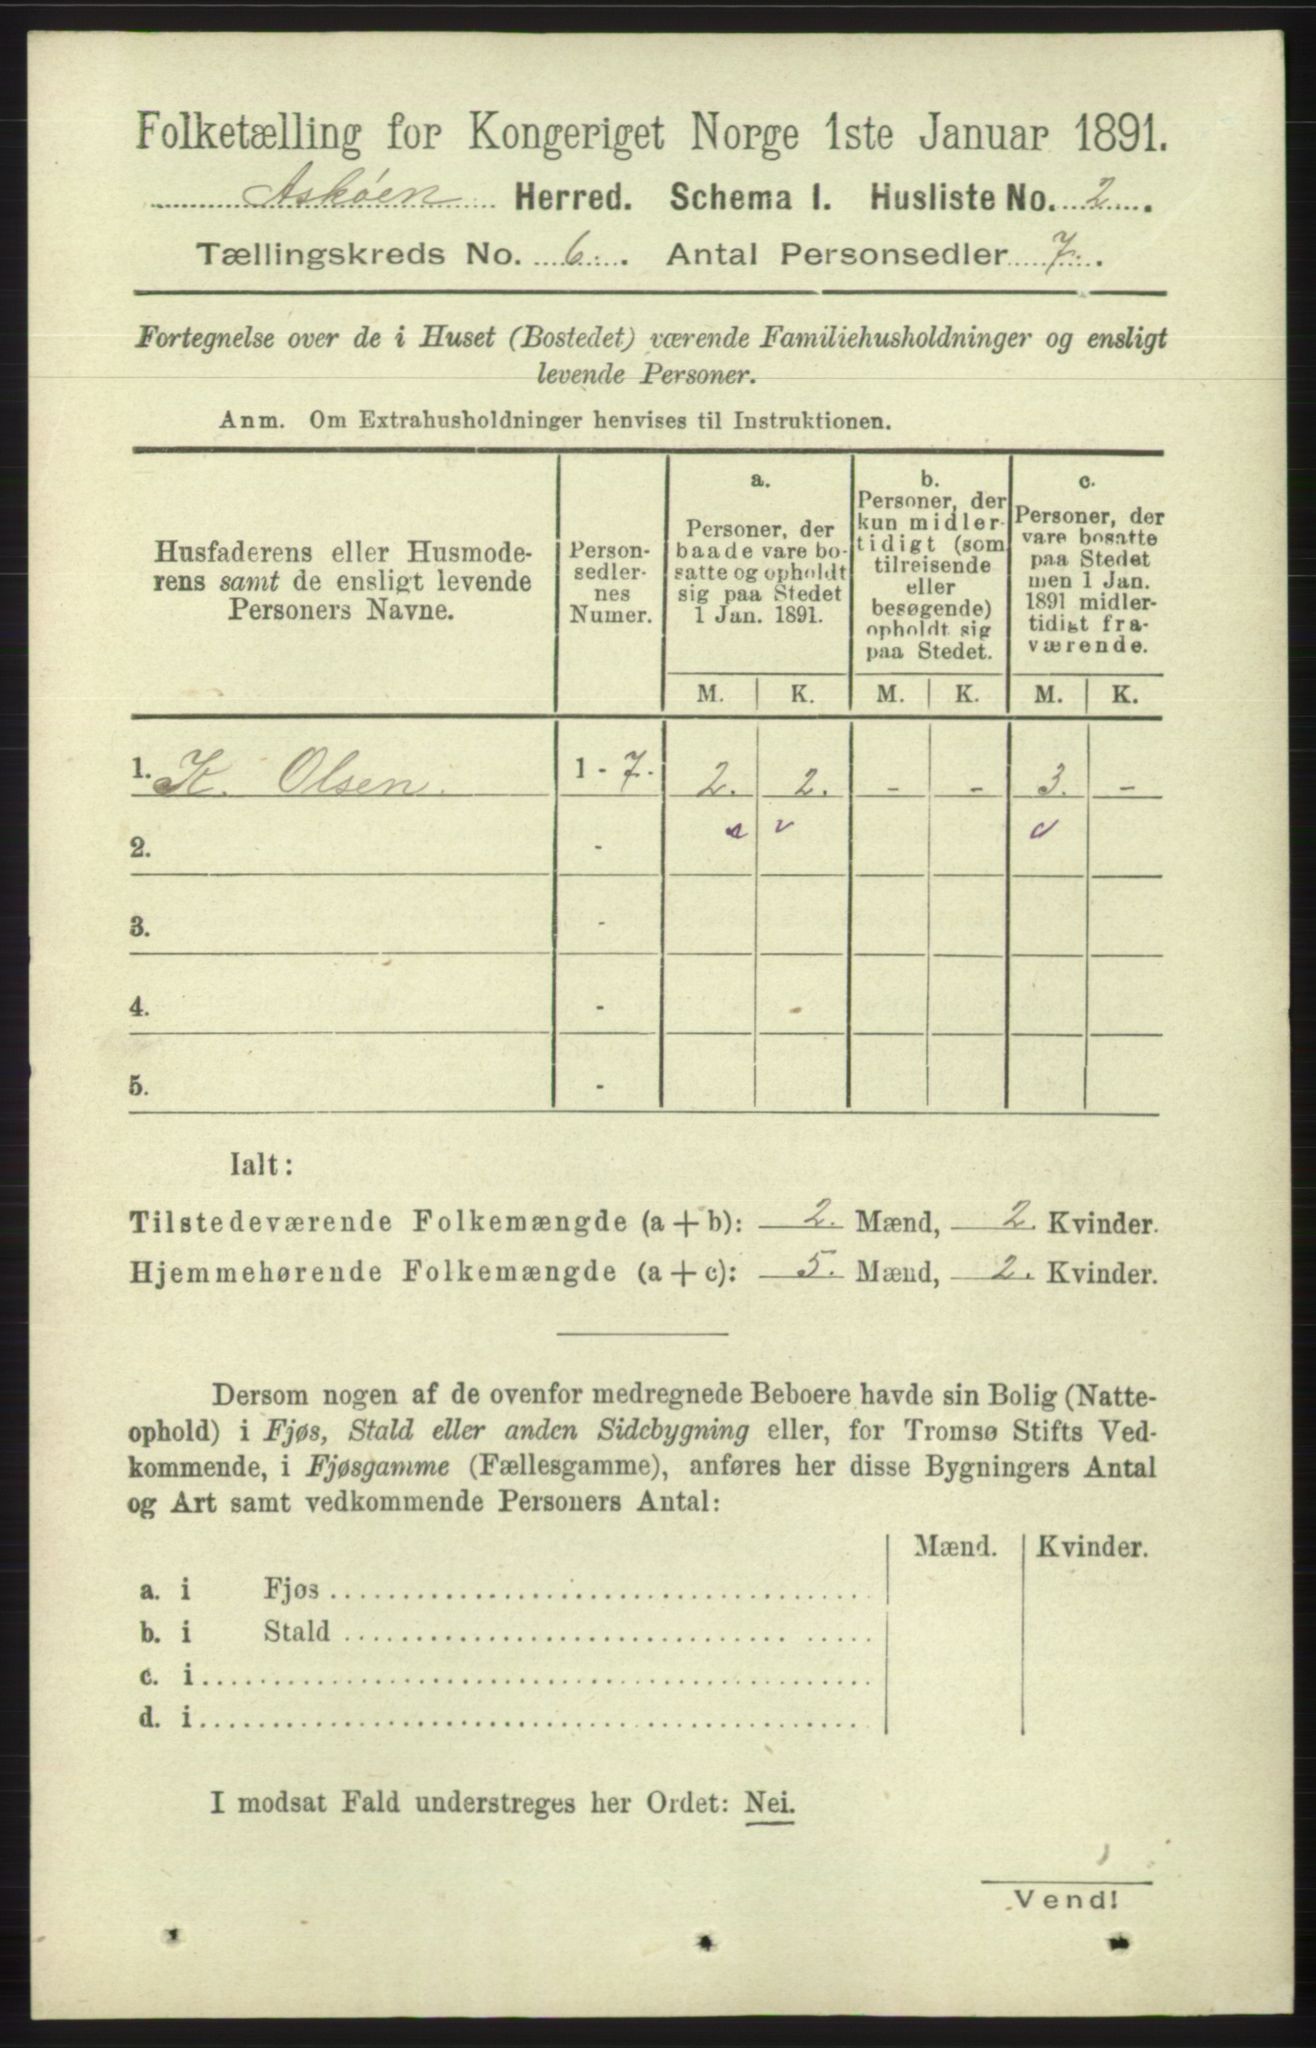 Folketælling for Kongeriget Norge 1ste Januar 1891.
Askøen Herred. Schema I. Husliste No. 2.
Tællingskreds No. 6. Antal Personsedler 7.
Fortegnelse over de i Huset (Bostedet) værende Familiehusholdninger og ensligt
levende Personer.
Anm. Om Extrahusholdninger henvises til Instruktionen.
Husfaderens eller Husmode-
rens samt de ensligt levende
Personers Navne.
Person-
sedler-
nes
Numer.
a.
Personer, der
baade vare bo-
satte og opholdt
sig paa Stedet
1 Jan. 1891.
b.
Personer, der
kun midler-
tidigt (som
tilreisende
eller
besøgende)
opholdt sig
paa Stedet.
c.
Personer, der
vare bosatte
paa Stedet
men 1 Jan.
1891 midler-
tidigt fra-
værende.
M. K. M. K. M. K.
1. K. Olsen. 1 - 7. 2. 2. - - 3. -
2. -
3. -
4. -
5. -
Ialt:
Tilstedeværende Folkemængde (a + b): 2. Mænd, 2. Kvinder.
Hjemmehørende Folkemængde (a + c): 5. Mænd, 2. Kvinder.
Dersom nogen af de ovenfor medregnede Beboere havde sin Bolig (Natte-
ophold) i Fjøs, Stald eller anden Sidebygning eller, for Tromsø Stifts Ved-
kommende, i Fjøsgamme (Fællesgamme), anføres her disse Bygningers Antal
og Art samt vedkommende Personers Antal:
Mænd. Kvinder.
a. i Fjøs
b. i Stald
c. i
d. i
I modsat Fald understreges her Ordet: Nei.
Vend!